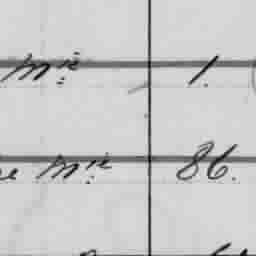 Mie 1.
e Mie 86.